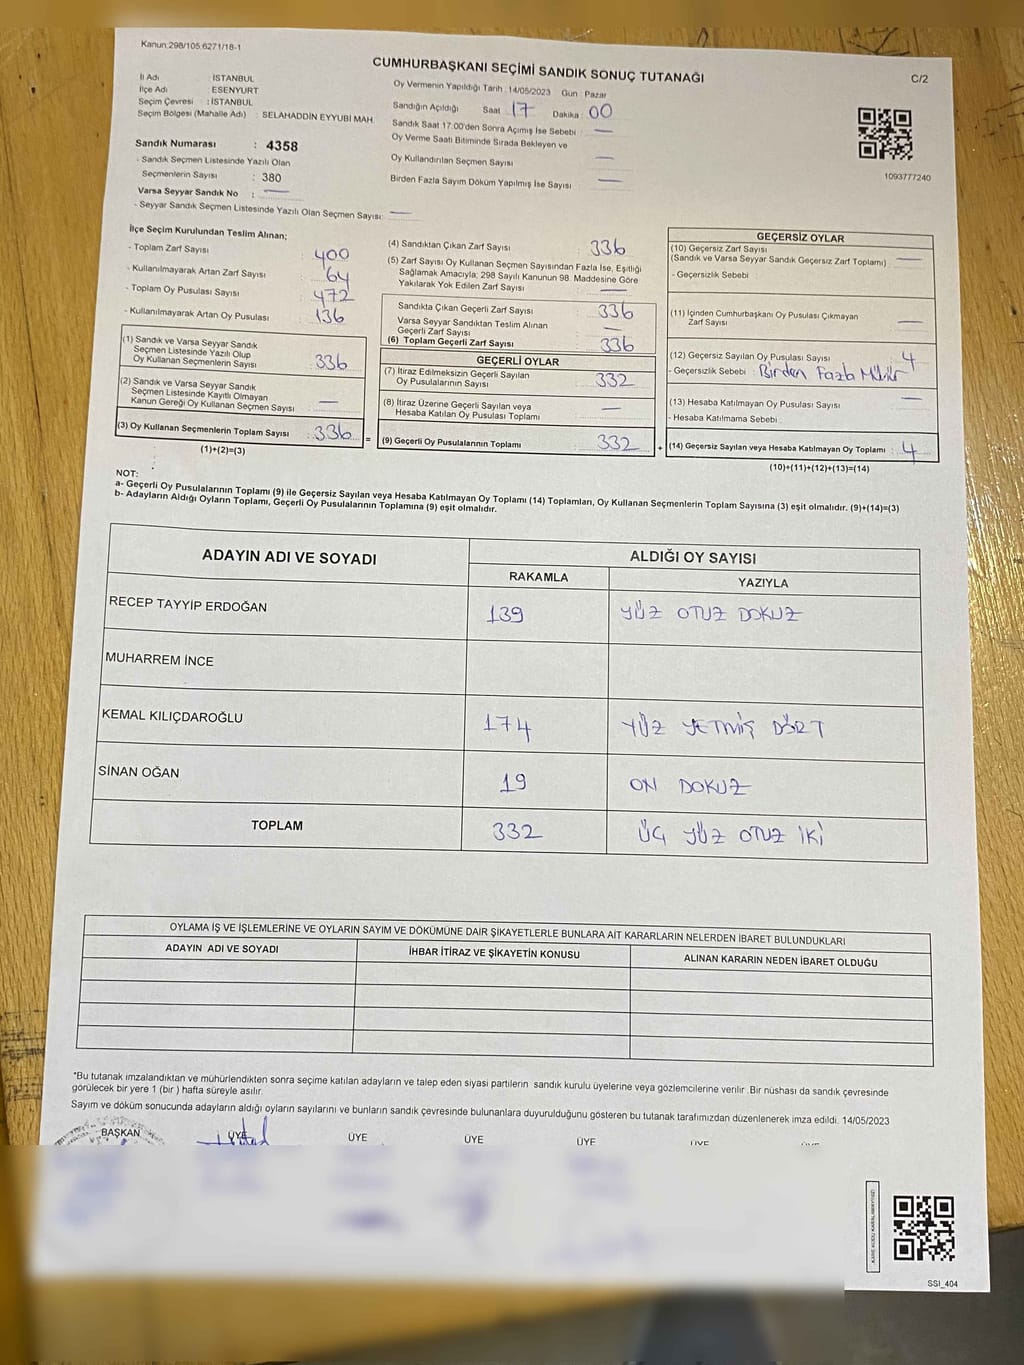 Kanun:298/105,6271/18-1
CUMHURBAŞKANI SEÇİMİ SANDIK SONUÇ TUTANAĞI
C/2
İl Adı İSTANBUL
İlçe Adı ESENYURT
Seçim Çevresi : İSTANBUL
Seçim Bölgesi (Mahalle Adı) : SELAHADDİN EYYUBİ MAH.
Sandık Numarası : 4358
- Sandık Seçmen Listesinde Yazılı Olan
Seçmenlerin Sayısı : 380
Varsa Seyyar Sandık No : —
- Seyyar Sandık Seçmen Listesinde Yazılı Olan Seçmen Sayısı: —
Oy Vermenin Yapıldığı Tarih : 14/05/2023 Gün : Pazar
Sandığın Açıldığı Saat 17 Dakika : 00
Sandık Saat 17:00'den Sonra Açımış İse Sebebi : —
Oy Verme Saati Bitiminde Sırada Bekleyen ve
Oy Kullandırılan Seçmen Sayısı —
Birden Fazla Sayım Döküm Yapılmış İse Sayısı : —
1093777240
İlçe Seçim Kurulundan Teslim Alınan;
- Toplam Zarf Sayısı 400
- Kullanılmayarak Artan Zarf Sayısı 64
- Toplam Oy Pusulası Sayısı 472
- Kullanılmayarak Artan Oy Pusulası 136
(1) Sandık ve Varsa Seyyar Sandık
Seçmen Listesinde Yazılı Olup
Oy Kullanan Seçmenlerin Sayısı 336
(2) Sandık ve Varsa Seyyar Sandık
Seçmen Listesinde Kayıtlı Olmayan
Kanun Gereği Oy Kullanan Seçmen Sayısı —
(3) Oy Kullanan Seçmenlerin Toplam Sayısı : 336 =
(1)+(2)=(3)
(4) Sandıktan Çıkan Zarf Sayısı 336
(5) Zarf Sayısı Oy Kullanan Seçmen Sayısından Fazla İse, Eşitliği
Sağlamak Amacıyla; 298 Sayılı Kanunun 98. Maddesine Göre
Yakılarak Yok Edilen Zarf Sayısı —
Sandıkta Çıkan Geçerli Zarf Sayısı 336
Varsa Seyyar Sandıktan Teslim Alınan
Geçerli Zarf Sayısı —
(6) Toplam Geçerli Zarf Sayısı 336
GEÇERLİ OYLAR
(7) İtiraz Edilmeksizin Geçerli Sayılan
Oy Pusulalarının Sayısı 332
(8) İtiraz Üzerine Geçerli Sayılan veya
Hesaba Katılan Oy Pusulası Toplamı —
(9) Geçerli Oy Pusulalarının Toplamı 332 +
GEÇERSİZ OYLAR
(10) Geçersiz Zarf Sayısı
(Sandık ve Varsa Seyyar Sandık Geçersiz Zarf Toplamı) —
- Geçersizlik Sebebi :
(11) İçinden Cumhurbaşkanı Oy Pusulası Çıkmayan
Zarf Sayısı —
(12) Geçersiz Sayılan Oy Pusulası Sayısı 4
- Geçersizlik Sebebi : Birden Fazla Mühür
(13) Hesaba Katılmayan Oy Pusulası Sayısı —
- Hesaba Katılmama Sebebi :
(14) Geçersiz Sayılan veya Hesaba Katılmayan Oy Toplamı : 4
(10)+(11)+(12)+(13)=(14)
NOT:
a- Geçerli Oy Pusulalarının Toplamı (9) ile Geçersiz Sayılan veya Hesaba Katılmayan Oy Toplamı (14) Toplamları, Oy Kullanan Seçmenlerin Toplam Sayısına (3) eşit olmalıdır. (9)+(14)=(3)
b- Adayların Aldığı Oyların Toplamı, Geçerli Oy Pusulalarının Toplamına (9) eşit olmalıdır.
ADAYIN ADI VE SOYADI
ALDIĞI OY SAYISI
RAKAMLA YAZIYLA
RECEP TAYYİP ERDOĞAN 139 YÜZ OTUZ DOKUZ
MUHARREM İNCE
KEMAL KILIÇDAROĞLU 174 YÜZ YETMİŞ DÖRT
SİNAN OĞAN 19 ON DOKUZ
TOPLAM 332 ÜÇ YÜZ OTUZ İKİ
OYLAMA İŞ VE İŞLEMLERİNE VE OYLARIN SAYIM VE DÖKÜMÜNE DAİR ŞİKAYETLERLE BUNLARA AİT KARARLARIN NELERDEN İBARET BULUNDUKLARI
ADAYIN ADI VE SOYADI İHBAR İTİRAZ VE ŞİKAYETİN KONUSU ALINAN KARARIN NEDEN İBARET OLDUĞU
*Bu tutanak imzalandıktan ve mühürlendikten sonra seçime katılan adayların ve talep eden siyasi partilerin sandık kurulu üyelerine veya gözlemcilerine verilir .Bir nüshası da sandık çevresinde
görülecek bir yere 1 (bir ) hafta süreyle asılır.
Sayım ve döküm sonucunda adayların aldığı oyların sayılarını ve bunların sandık çevresinde bulunanlara duyurulduğunu gösteren bu tutanak tarafımızdan düzenlenerek imza edildi. 14/05/2023
BAŞKAN ÜYE ÜYE ÜYE ÜYE ÜYE ÜYE
SSI_404